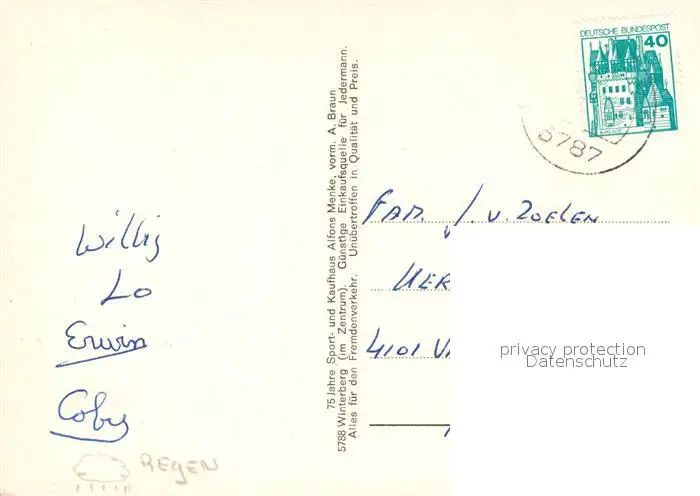 Willy
Lo
Erwin
Coby
REGEN
75 Jahre Sport- und Kaufhaus Alfons Menke, vorm. A. Braun
5788 Winterberg (im Zentrum). Günstige Einkaufsquelle für Jedermann.
Alles für den Fremdenverkehr. Unübertroffen in Qualität und Preis.
DEUTSCHE BUNDESPOST
40
BURG ELTZ
5787
FAM. J. V. ZOELEN
4101
privacy protection
Datenschutz